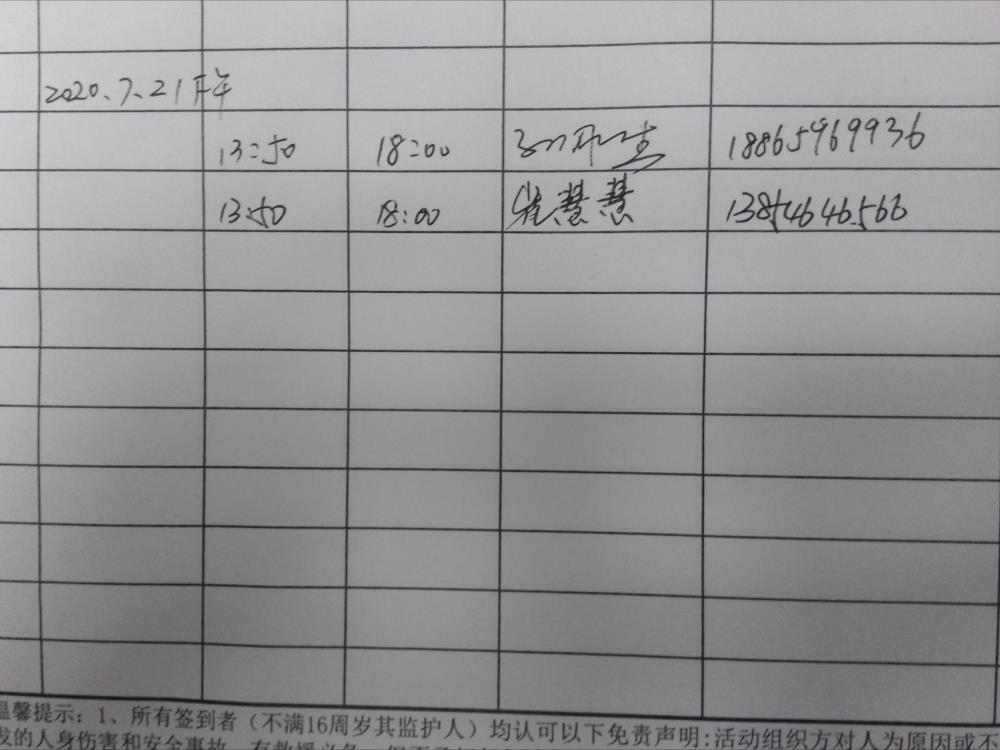 2020.7.21下午
13:50 18:00 18865969936
13:50 18:00 崔慧慧 13854646566
温馨提示：1、所有签到者（不满16周岁其监护人）均认可以下免责声明:活动组织方对人为原因或不
发的人身伤害和安全事故